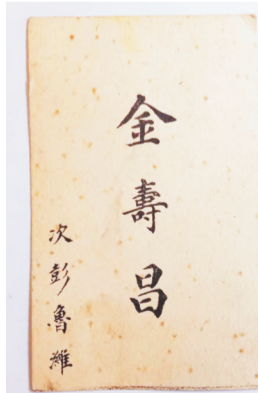 金壽昌
次彭魯雍